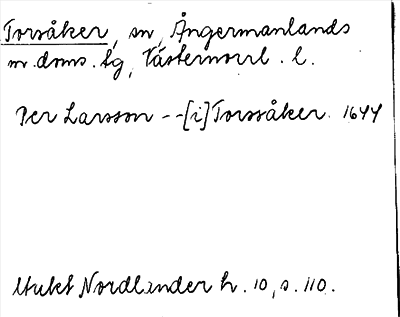 Torsåker, sn, Ångermanlands
m. doms. tg, Västernorrl. l.
Per Larsson --[i] Torssåker. 1644
Utukt Nordlander h. 10, s. 110.